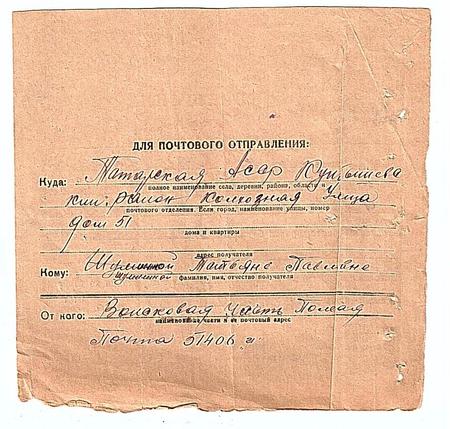 ДЛЯ ПОЧТОВОГО ОТПРАВЛЕНИЯ:
Куда: Татарская Асср Куйбышева
полное наименование села, деревни, района, области и
район Колхозная Улица
почтового отделения. Если город, наименование улицы, номер
дом 51
дома и квартиры
адрес получателя
Кому: Шулиной Татьяне Павловне
фамилия, имя, отчество получателя
От кого: Воисковая Часть Полевая
наименование части и ее почтовый адрес
Почта 51406